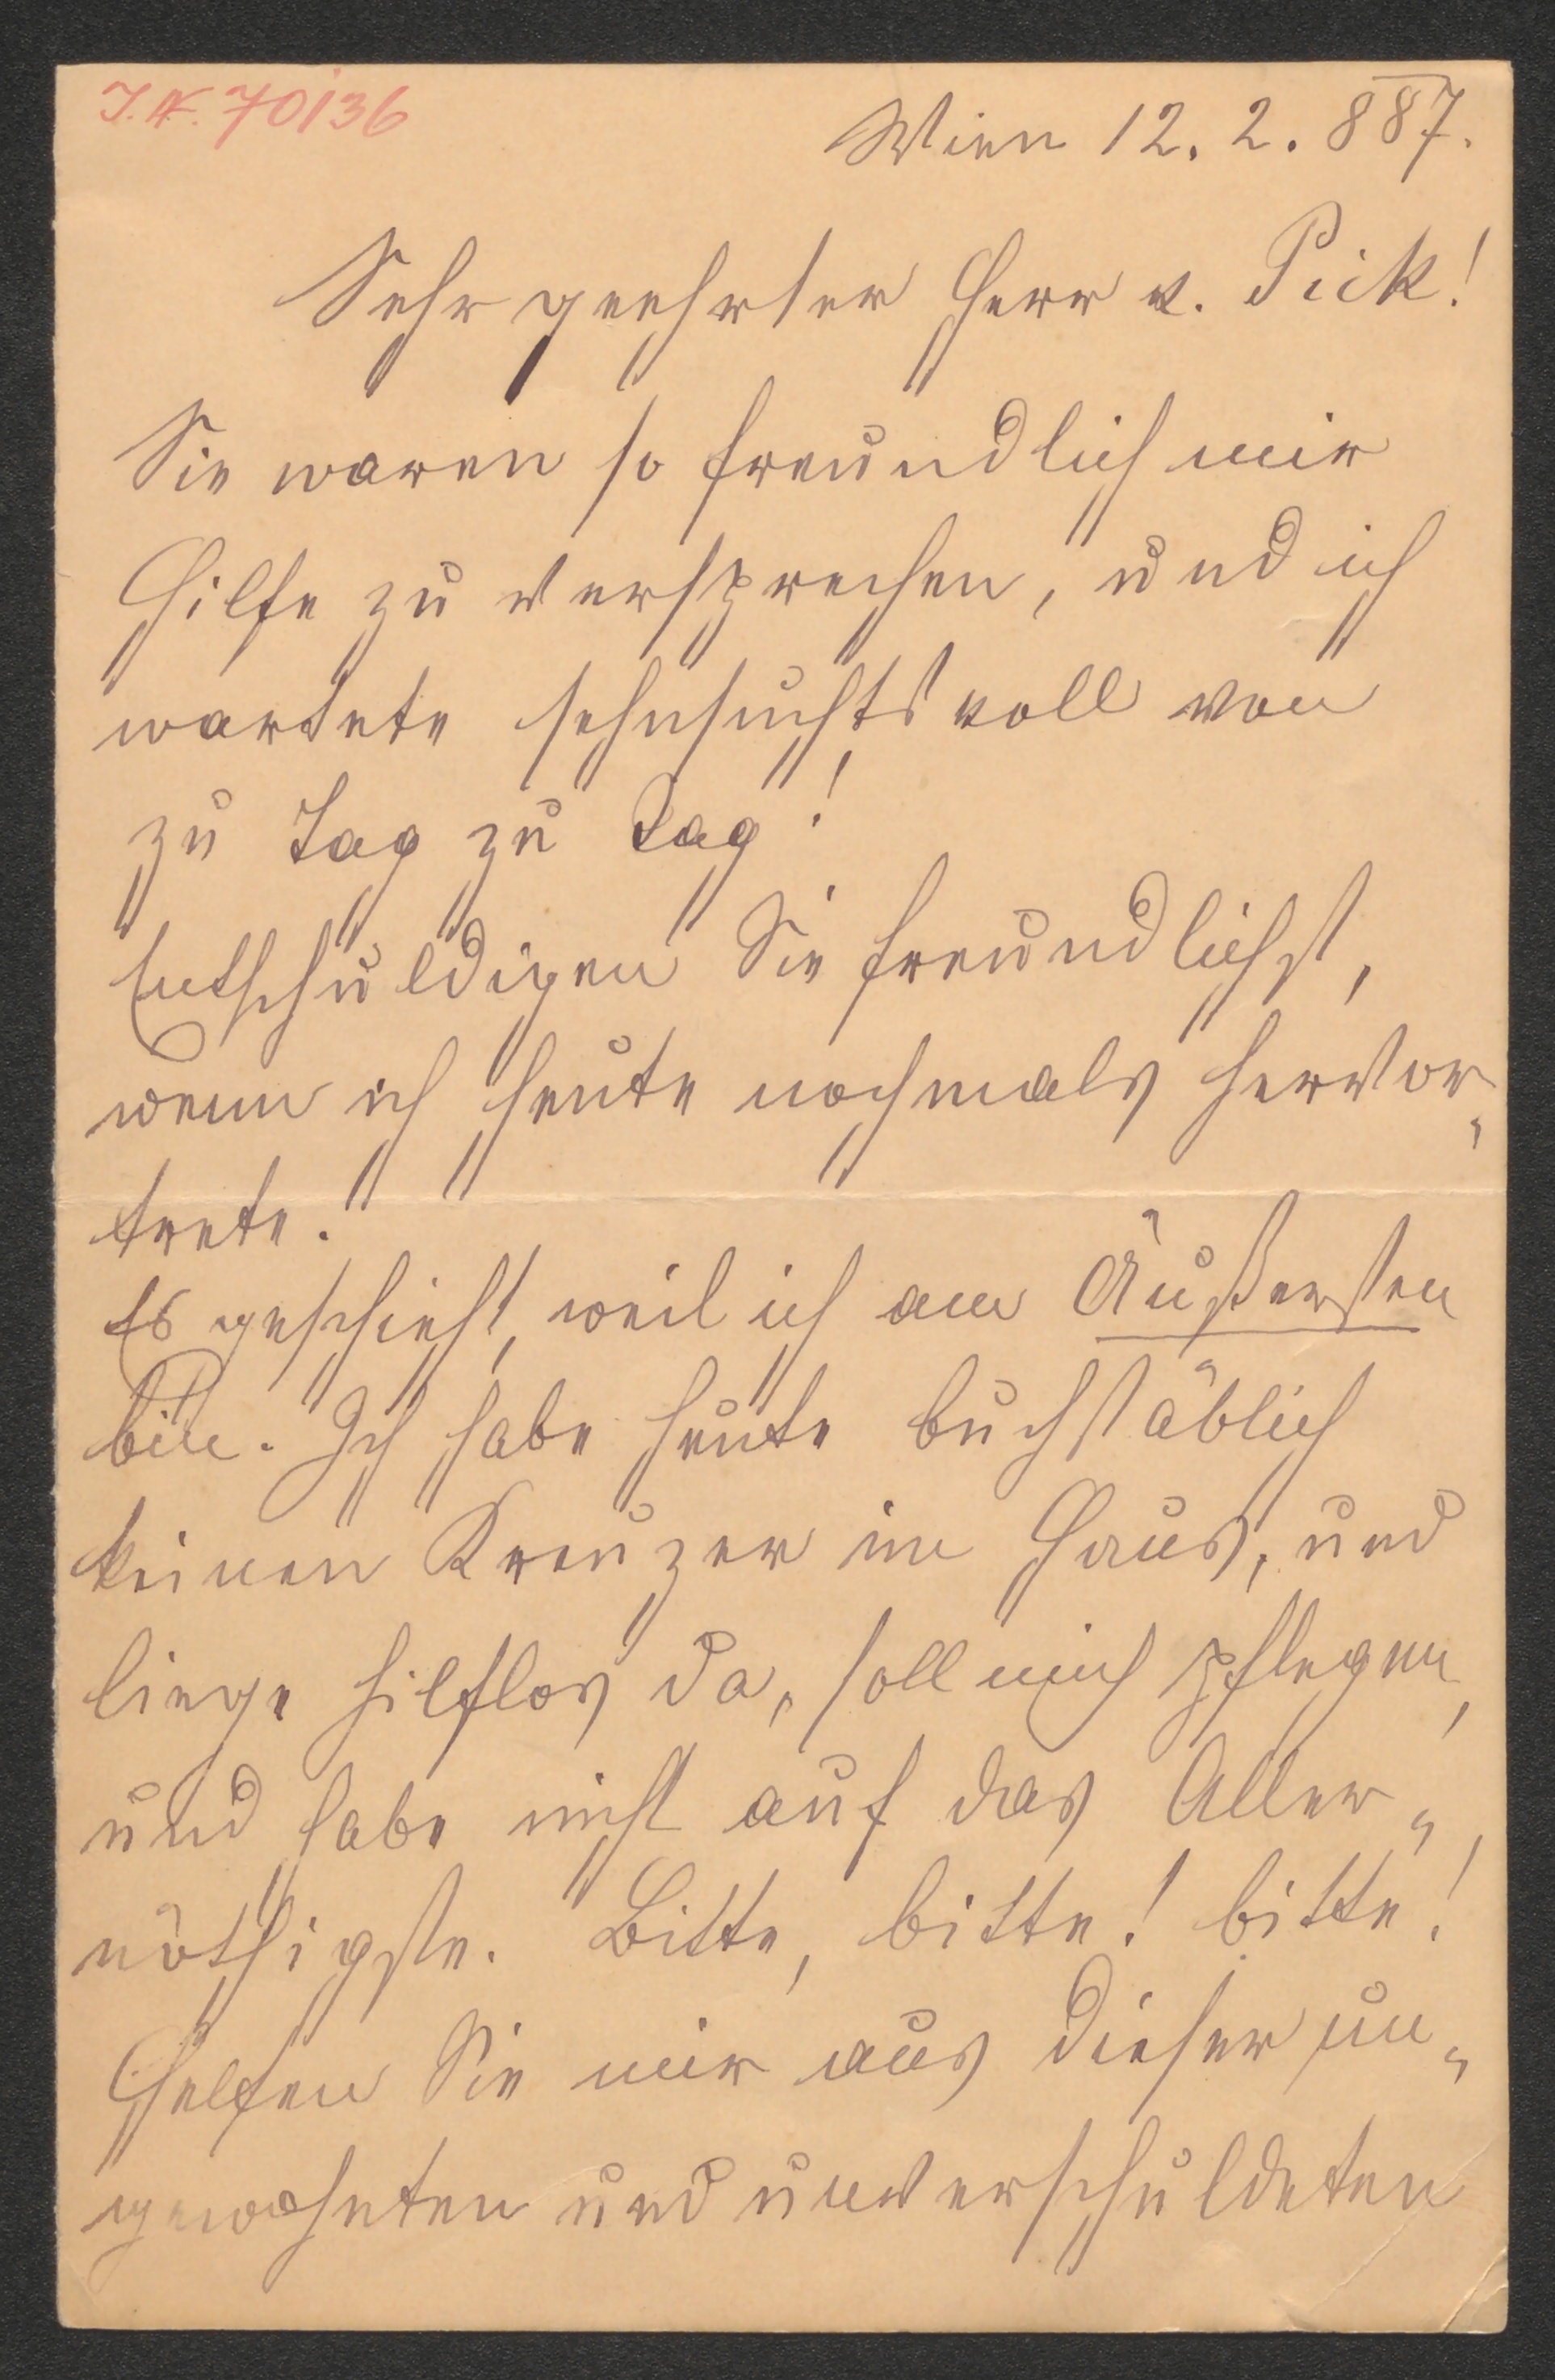 I.N. 70136
Wien 12. 2. 887.
Sehr geehrter Herr v. Pick!
Sie waren so freundlich mir
Hilfe zu versprechen, und ich
wartete sehnsuchtsvoll von
zu Tag zu Tag!
Entschuldigen Sie freundlichst,
wenn ich heute nochmals hervor„
trete.
Es geschieht, weil ich am Äußersten
bin. Ich habe heute buchstäblich
keinen Kreuzer im Haus, und
liege hilflos da, soll mich pflegen,
und habe nicht auf das Aller„
nöthigste. Bitte, bitte! bitte!
Helfen Sie mir aus dieser un„
gewohnten und unverschuldeten